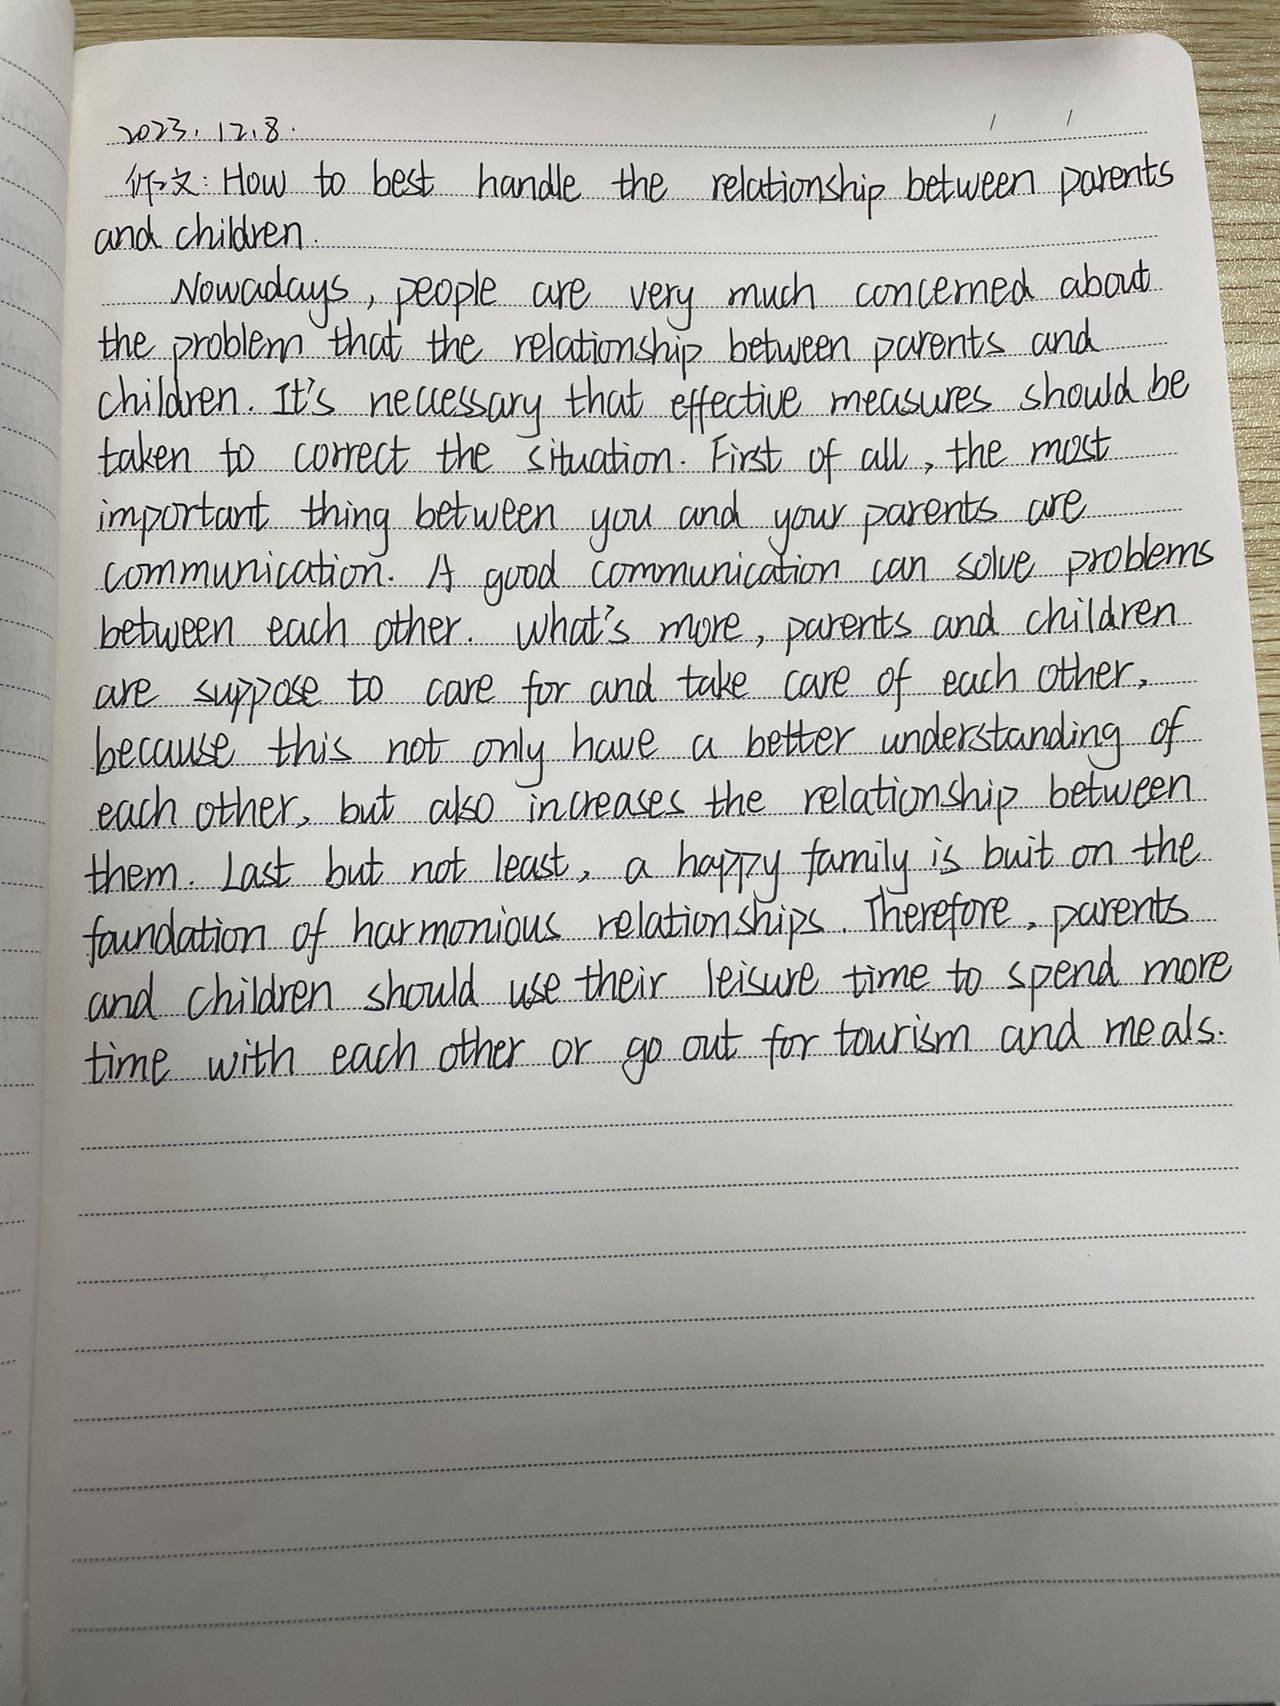 2023.12.8.
作文: How to best handle the relationship between parents
and children.
Nowadays, people are very much concerned about
the problem that the relationship between parents and
children. It's neccessary that effective measures should be
taken to correct the situation. First of all, the most
important thing between you and your parents are
communication. A good communication can solve problems
between each other. What's more, parents and children
are suppose to care for and take care of each other,
because this not only have a better understanding of
each other, but also increases the relationship between
them. Last but not least, a happy family is buit on the
foundation of harmonious relationships. Therefore, parents
and children should use their leisure time to spend more
time with each other or go out for tourism and meals.